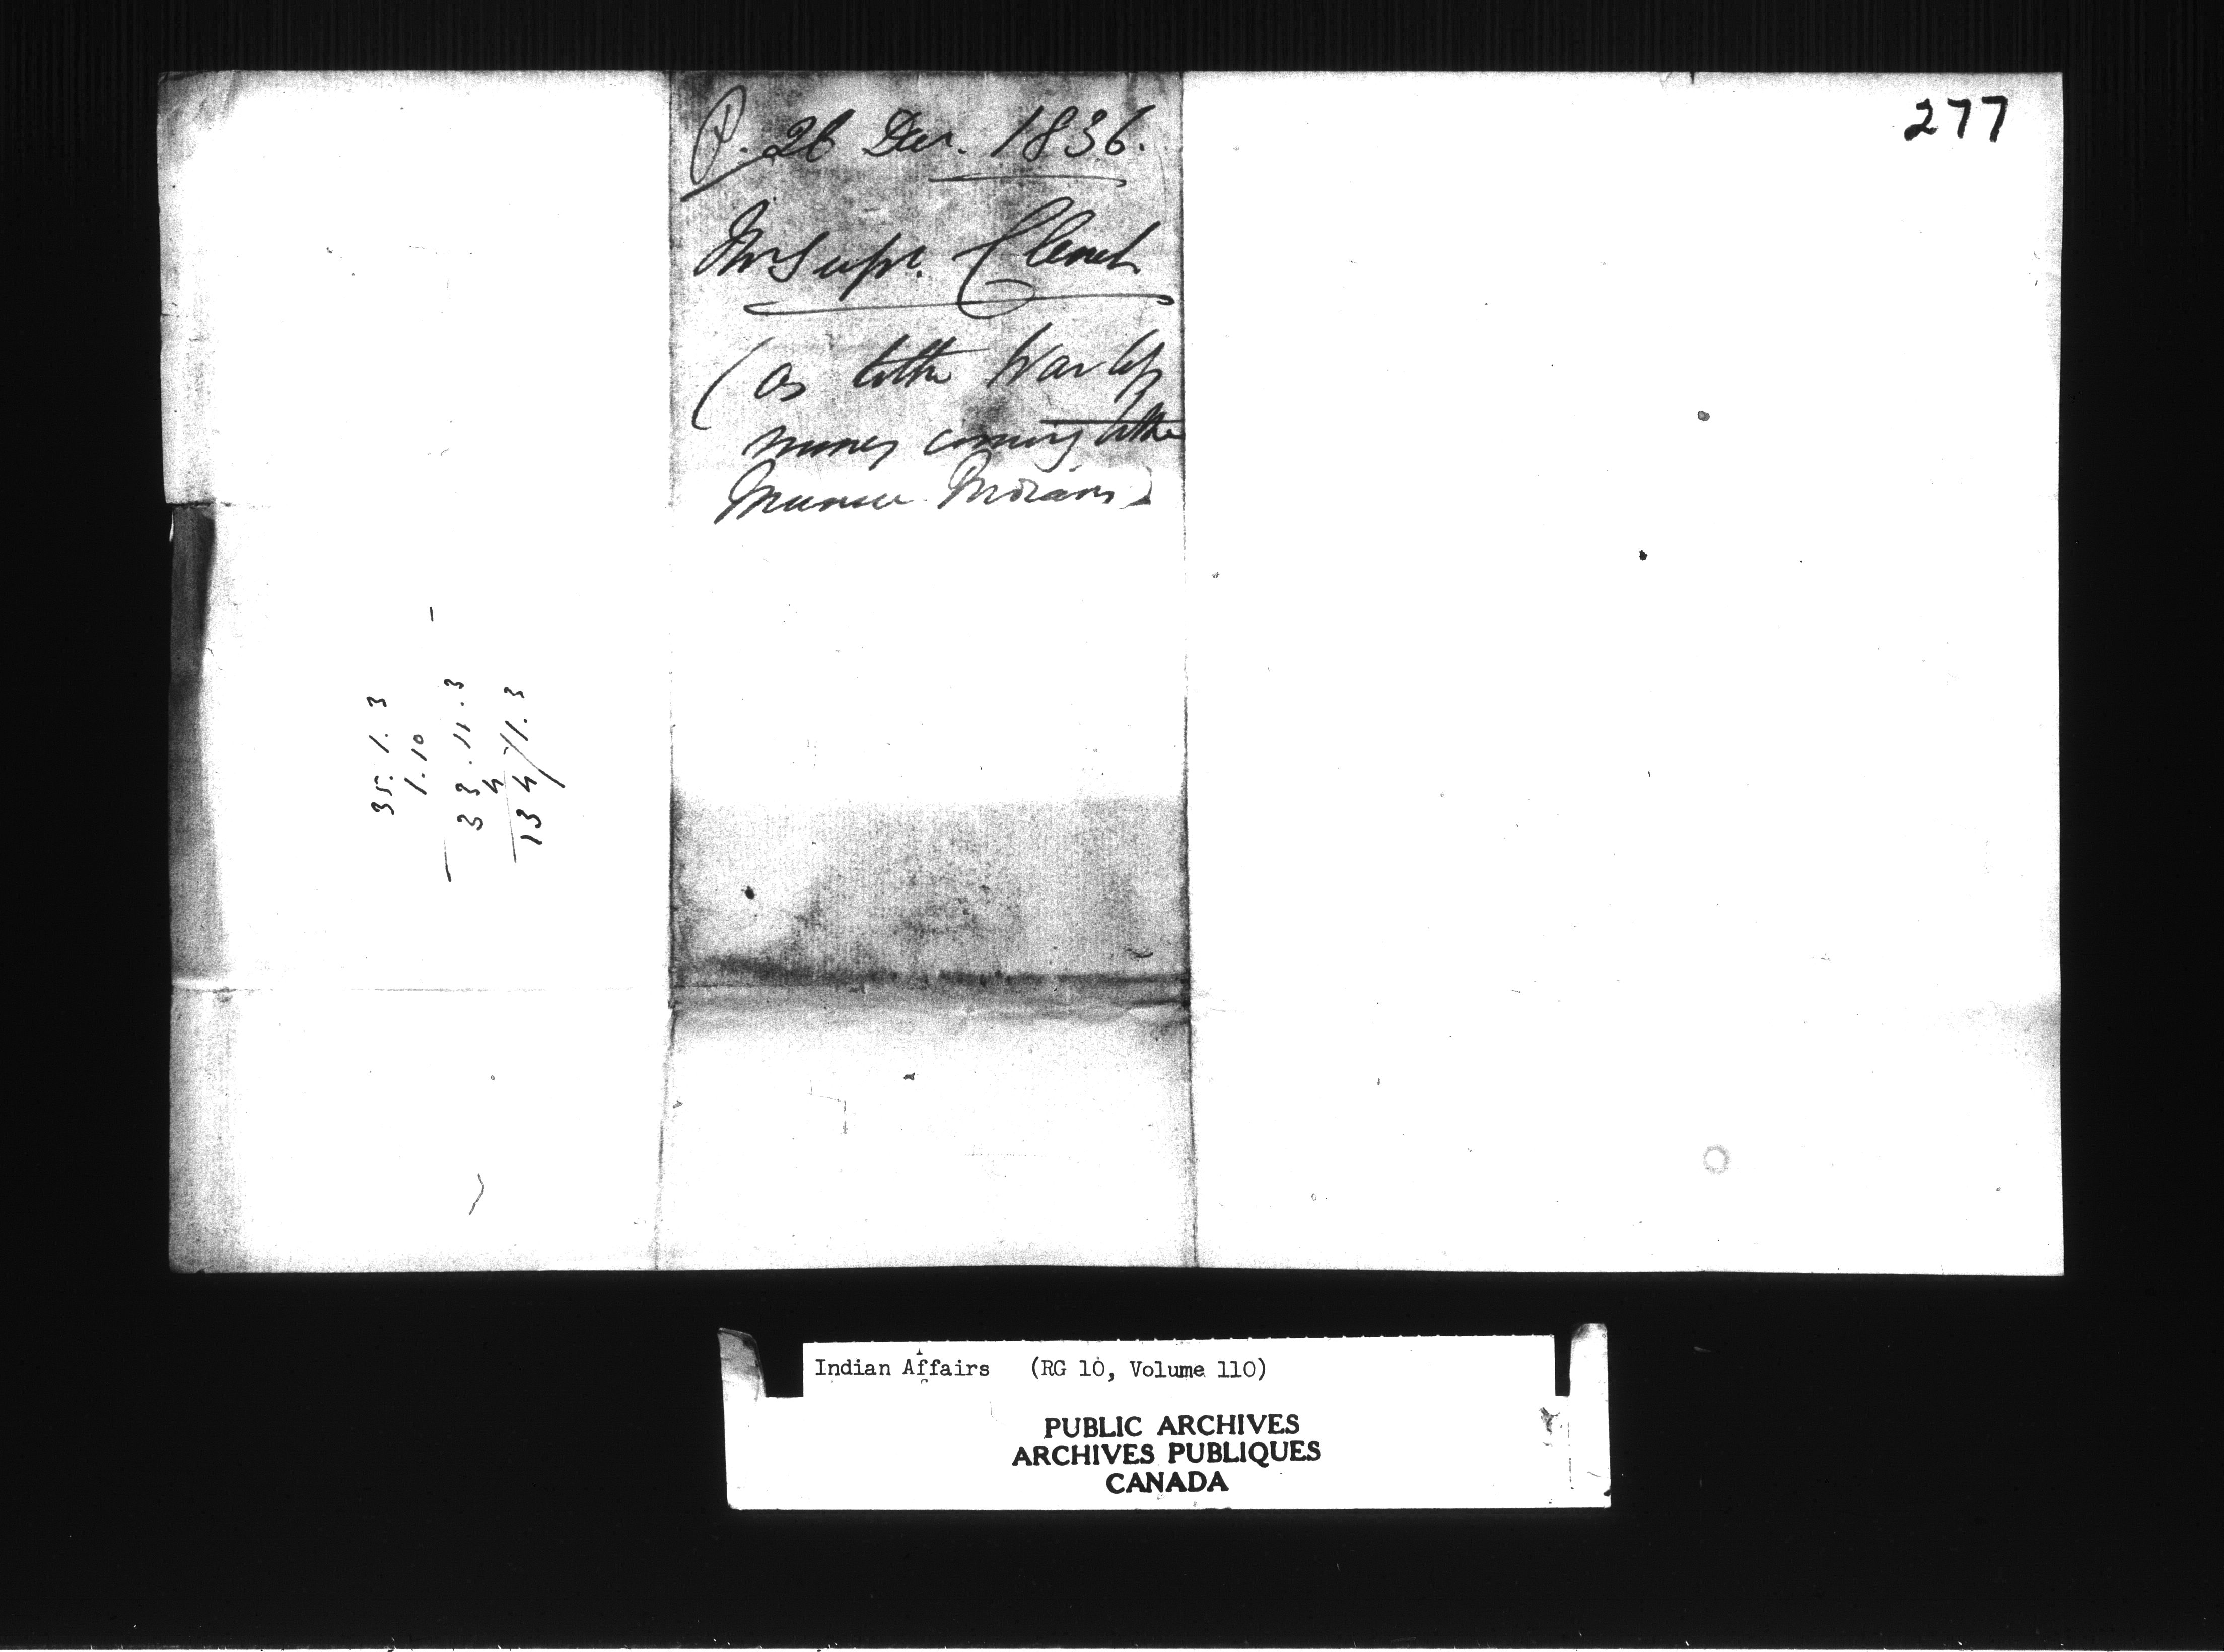 277
R. 26 Dec. 1836.
Mr Supt. Clench
(as to the War Lop
money coming to the
Munsee Indians)
35. 1. 3
1. 10
33. 11. 3
4
134 / 1. 3
Indian Affairs (RG 10, Volume 110)
PUBLIC ARCHIVES
ARCHIVES PUBLIQUES
CANADA